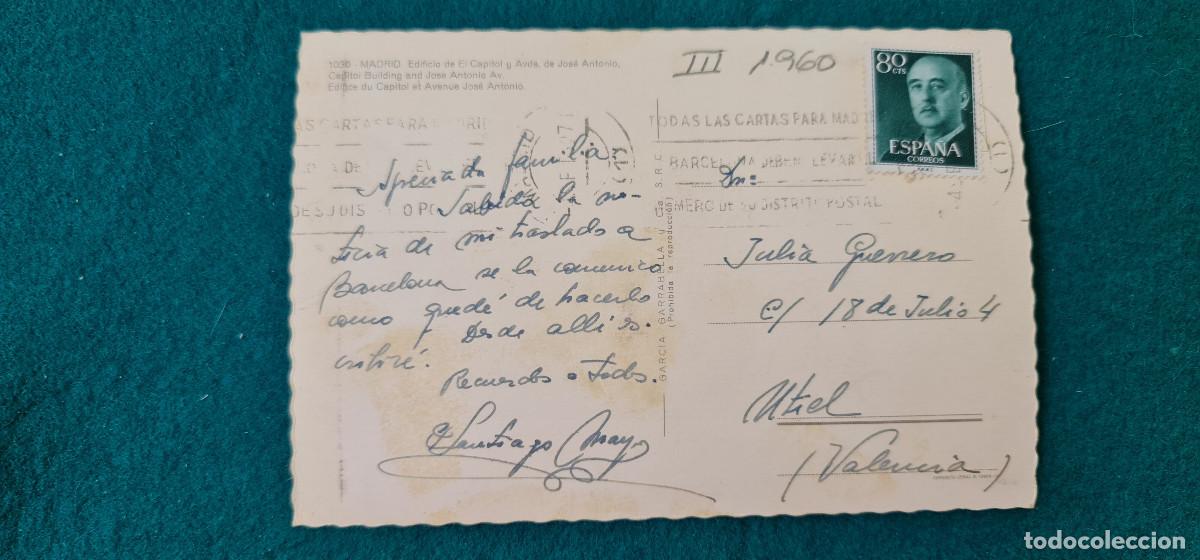 1030 - MADRID. Edificio de El Capitol y Avda. de José Antonio.
Capitol Building and Jose Antonio Av.
Edifice du Capitol et Avenue José Antonio.
III 1960
80 CTS
ESPAÑA
CORREOS
TODAS LAS CARTAS PARA MAD
BARCELONA DEBEN LLEVAR
MERO DE SU DISTRITO POSTAL
Apreciada familia
Sabida la no-
ticia de mi traslado a
Barcelona se la comunico
como quedé de hacerlo
Desde allí es-
cribiré.
Recuerdos a todos.
Santiago Mayo
GARCIA GARRABELLA Y Cia S.R.C.
(Prohibida la reproducción)
Dn:
Julia Guerrero
C/ 18 de Julio 4
Utiel
(Valencia)
todocoleccion